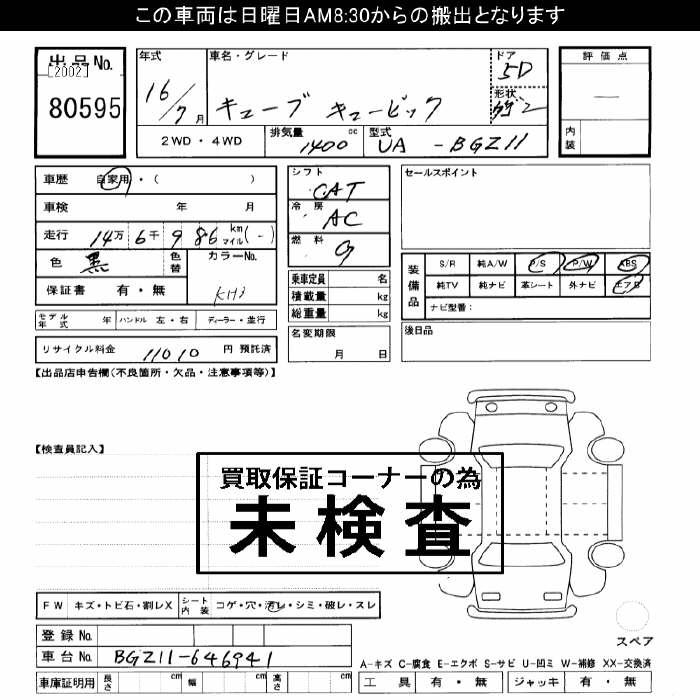 この車両は日曜日AM8:30からの搬出となります
出品No.
[2002]
80595
年式
16/7月
車名・グレード
キューブ キュービック
ドア
5D
形状
評価点
—
内装
2WD・4WD
排気量
1400 cc
型式
UA - BGZ11
車歴 自家用・( )
車検 年 月
走行 14万 6千 9 86 km マイル(-)
色 黒
色替
カラーNo.
KH3
保証書 有・無
モデル年式 年 ハンドル 左・右 ディーラー・並行
リサイクル料金 11010 円 預託済
シフト
CAT
冷房
AC
燃料
G
乗車定員 名
積載量 kg
総重量 kg
名変期限
月 日
セールスポイント
装備品
S/R 純A/W P/S P/W ABS
純TV 純ナビ 革シート 外ナビ エアB
ナビ型番:
後日品
【出品店申告欄(不良箇所・欠品・注意事項等)】
【検査員記入】
買取保証コーナーの為
未検査
FW キズ・トビ石・割レX シート内装 コゲ・穴・汚レ・シミ・破レ・スレ
登録No.
車台No. BGZ11-646941
車庫証明用 長さ cm 幅 cm 高さ cm
スペア
A-キズ C-腐食 E-エクボ S-サビ U-凹ミ W-補修 XX-交換済
工具 有・無 ジャッキ 有・無